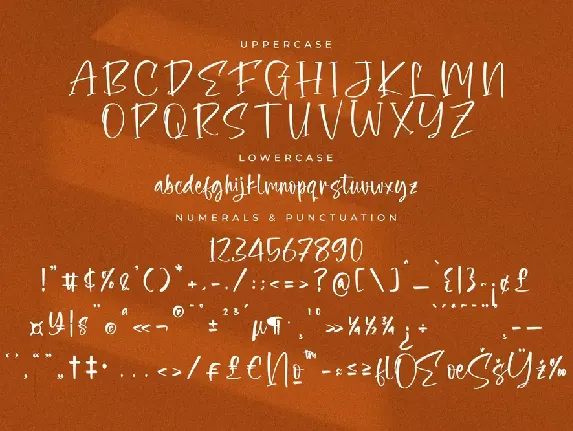 UPPERCASE
ABCDEFGHIJKLMN
OPQRSTUVWXYZ
LOWERCASE
abcdefghijklmnopqrstuvwxyz
NUMERALS & PUNCTUATION
1234567890
!"#$%&'()*+,-./:;<=>?@[\]^_`{|}~¡¢£
¤¥¦§¨©ª«¬®¯°±²³´µ¶·¸¹º»¼½¾¿÷
‘’‚“”„†‡•...‹›/₣£€₪№™−≈≤≥flŒΣœŠšŸž‰